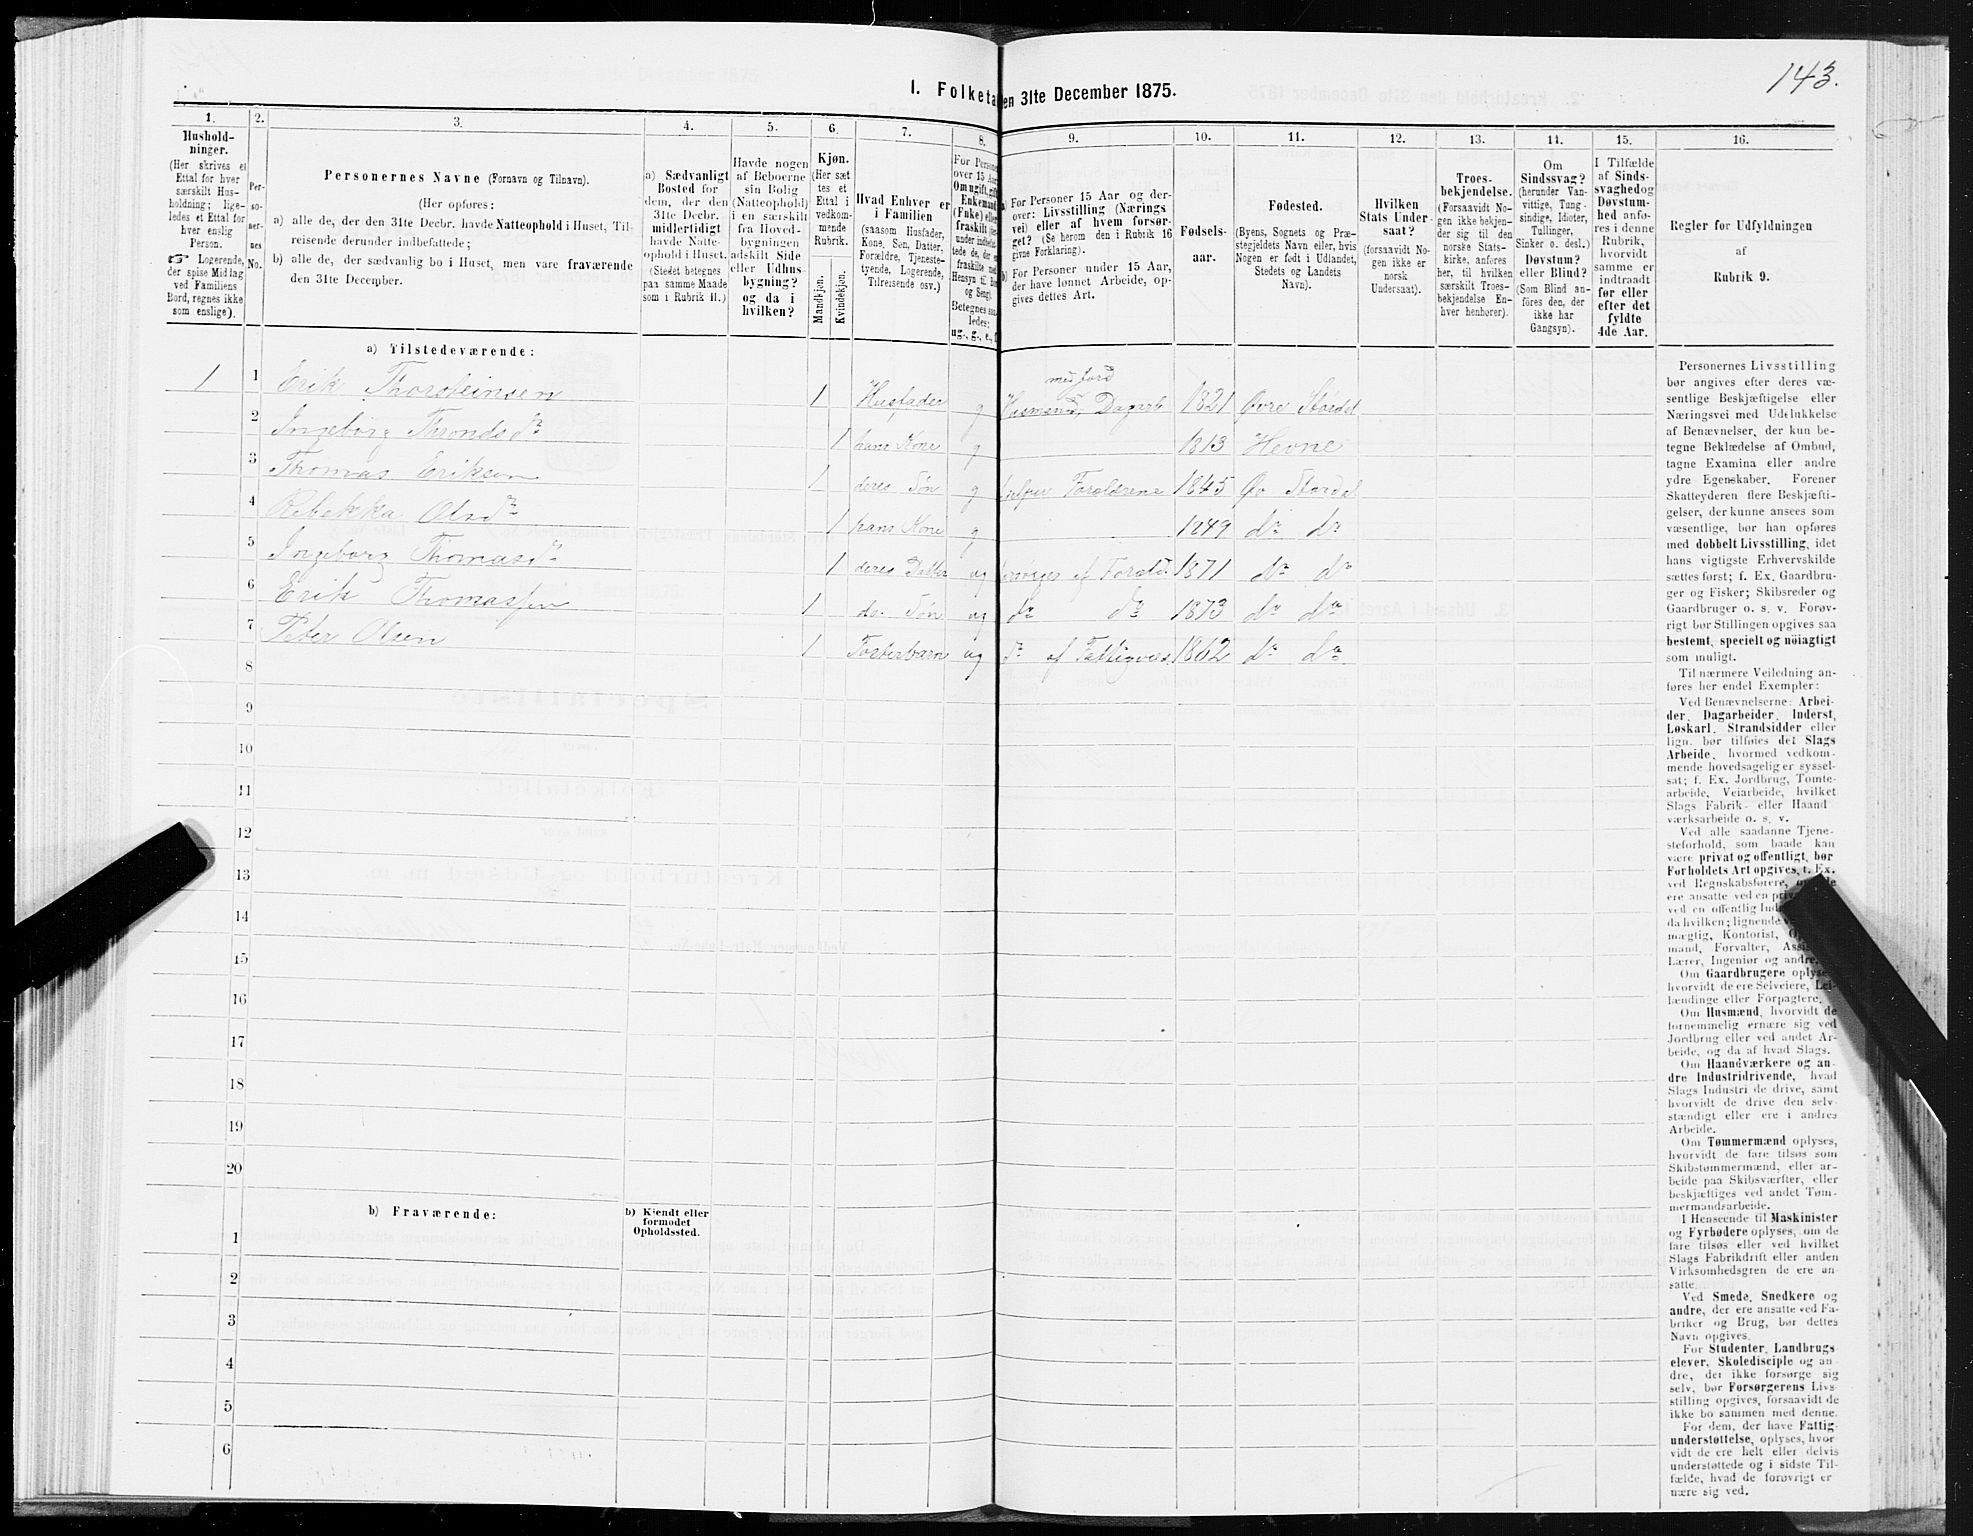 143.
I. Folketa en 31te December 1875.
1. 2. 3. 4. 5. 6. 7. 8. 9. 10. 11. 12. 13. 14. 15. 16.
Hushold-
ninger.
(Her skrives et
Ettal for hver
særskilt Hus-
holdning; lige-
ledes et Ettal for
hver enslig
Person.
☞ Logerende,
der spise Middag
ved Familiens
Bord, regnes ikke
som enslige).
Per-
so-
ner-
nes
No.
Personernes Navne (Fornavn og Tilnavn).
(Her opføres:
a) alle de, der den 31te Decbr. havde Natteophold i Huset, Til-
reisende derunder indbefattede;
b) alle de, der sædvanlig bo i Huset, men vare fraværende
den 31te December.
a) Sædvanligt
Bosted for
dem, der den
31te Decbr.
midlertidigt
havde Natte-
ophold i Huset.
(Stedet betegnes
paa samme Maade
som i Rubrik 11.)
Havde nogen
af Beboerne
sin Bolig
(Natteophold)
i en særskilt
fra Hoved-
bygningen
adskilt Side
eller Udhus-
bygning?
og da i
hvilken?
Kjøn.
(Her sæt
tes et
Ettal i
vedkom-
mende
Rubrik.
Mandkjøn.
Kvindekjøn.
Hvad Enhver er
i Familien
(saasom Husfader,
Kone, Søn, Datter,
Forældre, Tjeneste-
tyende, Logerende,
Tilreisende osv.)
For Persone
over 15 Aar
Om ugift, gift
Enkemand
(Enke) eller
fraskilt
Betegnes saa
ledes:
ug., g., e., f
a) For Personer 15 Aar og der-
over: Livsstilling (Nærings
vei) eller af hvem forsør-
get? (Se herom den i Rubrik 16
givne Forklaring).
b) For Personer under 15 Aar,
der have lønnet Arbeide, op-
gives dettes Art.
Fødsels-
aar.
Fødested.
(Byens, Sognets og Præ-
stegjeldets Navn eller, hvis
Nogen er født i Udlandet,
Stedets og Landets
Navn).
Hvilken
Stats Under-
saat?
(forsaavidt No-
gen ikke er
norsk
Undersaat).
Troes-
bekjendelse.
(Forsaavidt No-
gen ikke bekjen-
der sig til den
norske Stats-
kirke, anføres
her, til hvilken
særskilt Troes-
bekjendelse En-
hver henhører).
Om
Sindssvag?
(herunder Van-
vittige, Tung-
sindige, Idioter,
Tullinger,
Sinker o. desl.)
Døvstum?
eller Blind?
(Som Blind an-
føres den, der
ikke har
Gangsyn).
I Tilfælde
af Sinds-
svaghed og
Døvstum-
hed anfø-
res i denne
Rubrik,
hvorvidt
samme er
indtraadt
før eller
efter det
fyldte
4de Aar.
Regler for Udfyldningen
af
Rubrik 9.
a) Tilstedeværende:
1 1 Erik Thorsteinsen 1 Husfader g Husmand med jord, Dagarb 1821 Øvre Stordal
2 Ingeborg Thronds dr 1 hans Kone g 1813 Hevne
3 Thomas Eriksen 1 deres Søn g hjelper Forældrene 1845 Øv Stordal
4 Rebekka Olsdr 1 hans Kone g 1849 do do
5 Ingeborg Thomasdr 1 deres Datter ug forsørges af Foræld. 1871 do do
6 Erik Thomassen 1 ds. Søn ug do do 1873 do do
7 Peter Olsen 1 Fosterbarn ug do af Fattigvæs. 1862 do do
8
9
10
11
12
13
14
15
16
17
18
19
20
b) Fraværende:
b) Kjendt eller
formodet
Opholdssted.
1
2
3
4
5
6
Personernes Livsstilling
bør angives efter deres væ-
sentlige Beskjæftigelse eller
Næringsvei med Udelukkelse
af Benævnelser, der kun be-
tegne Beklædelse af Ombud,
tagne Examina eller andre
ydre Egenskaber. Forener
Skatteyderen flere Beskjæfti-
gelser, der kunne ansees som
væsentlige, bør han opføres
med dobbelt Livsstilling, idet
hans vigtigste Erhvervskilde
sættes først; f. Ex. Gaardbru-
ger og Fisker; Skibsreder og
Gaardbruger o. s. v. Forøv-
rigt bør Stillingen opgives saa
bestemt, specielt og nöiagtigt
som muligt.
Til nærmere Veiledning an-
føres her endel Exempler:
Ved Benævnelserne: Arbei-
der, Dagarbeider, Inderst,
Løskarl, Strandsidder eller
lign. bør tilføies det Slags
Arbeide, hvormed vedkom-
mende hovedsagelig er syssel-
sat; f. Ex. Jordbrug, Tomte-
arbeide, Veiarbeide, hvilket
Slags Fabrik- eller Haand
værksarbeide o. s. v.
Ved alle saadanne Tjene-
steforhold, som baade kan
være privat og offentligt, bør
Forholdets Art opgives, t. Ex.
ved Regnskabsførere,
ere ansatte ved en
ved en offentlig
da hvilken; lignende
mægtig, Kontorist,
mand, Forvalter,
Lærer, Ingeniør og andre.
Om Gaardbrugere oplyse
hvorvidt de ere Selveiere, Lei-
lændinge eller Forpagtere.
Om Husmænd, hvorvidt de
fornemmelig ernære sig ved
Jordbrug eller ved andet Ar-
beide, og da af hvad Slags.
Om Haandværkere og an-
dre Industridrivende, hvad
Slags Industri de drive, samt
hvorvidt de drive den selv-
stændigt eller ere i andres
Arbeide.
Om Tømmermænd oplyses,
hvorvidt de fare tilsøs som
Skibstømmermænd, eller ar-
beide paa Skibsværfter, eller
beskjæftiges ved andet Tøm-
mermandsarbeide.
I Henseende til Maskinister
og Fyrbødere oplyses, om de
fare tilsøs eller ved hvilket
Slags Fabrikdrift eller anden
Virksomhedsgren de ere an-
satte.
Ved Smede, Snedkere og
andre, der ere ansatte ved Fa-
briker og Brug, bør dettes
Navn opgives.
For Studenter, Landbrugs
elever, Skoledisciple og an-
dre, der ikke forsørge sig
selv, bør Forsørgerens Livs-
stilling opgives, forsaavidt de
ikke bo sammen med denne.
For dem, der have Fattig-
understøttelse, oplyses, hvor
vidt de ere helt eller delvis
understøttede og i sidste Til-
fælde, hvad de forøvrigt er
nære sig ved.